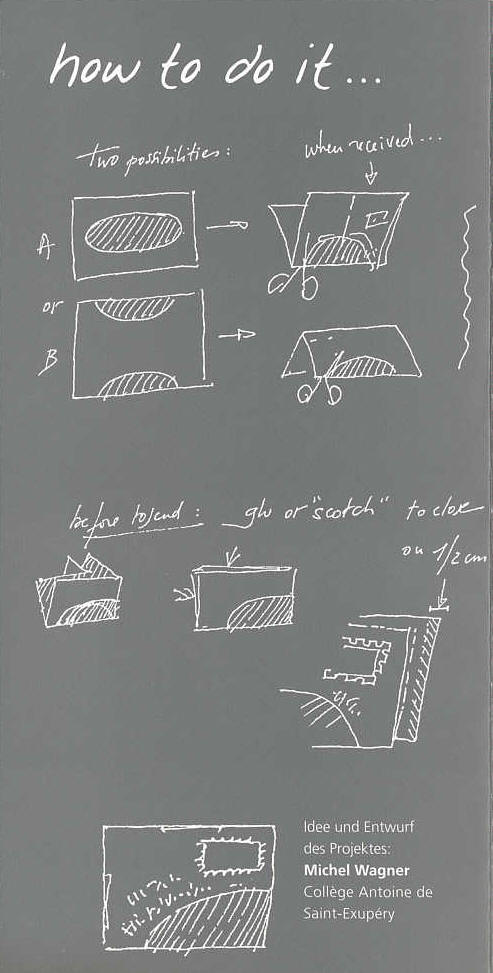 how to do it...
two possibilities:
when received...
A
or
B
before to send : glu or "scotch" to close
on 1/2 cm
Idee und Entwurf
des Projektes:
Michel Wagner
Collège Antoine de
Saint-Exupéry